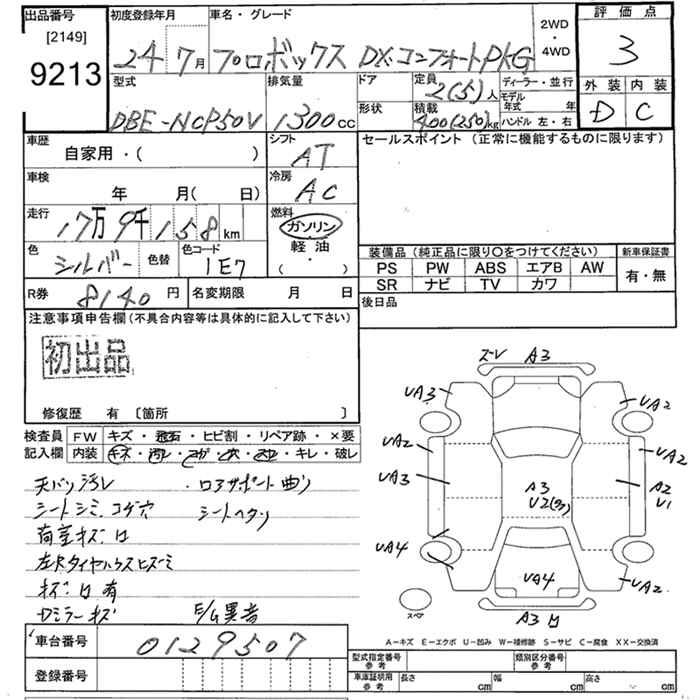 出品番号 初度登録年月 車名・グレード 2WD・4WD 評価点
[2149]
9213 24年7月 プロボックス DXコンフォートPKG 3
型式 排気量 ドア 定員 2(5)人 ディーラー・並行 外装 内装
DBE-NCP50V 1300cc 形状 積載 400(250)kg モデル年式 年 ハンドル 左・右 D C
車歴 シフト セールスポイント (正常に機能するものに限ります)
自家用・( ) AT
車検 冷房
年 月(日) AC
走行 燃料
17万9千158km ガソリン
色 色替 色コード 軽油
シルバー 1E7 ・( )
装備品 (純正品に限り○をつけてください) 新車保証書
PS PW ABS エアB AW 有・無
SR ナビ TV カワ
R券 8140円 名変期限 月 日 後日品
注意事項申告欄(不具合内容等は具体的に記入して下さい)
初出品
修復歴 有 〔箇所 〕
検査員記入欄 FW キズ・飛石・ヒビ割・リペア跡・×要
内装 キズ・汚レ・コゲ・穴・ヌレ・キレ・破レ
天バリ汚レ ・ロアサポート曲り
シートシミ コゲ穴 シートヘタリ
荷室キズ凹
左Rタイヤハウスヒズミ
キズ凹有
Dミラーキズ E/G異音
車台番号 0129507
登録番号
ズレ A3
UA3 UA2
UA2 UA2
UA3 A3 A2
U2(多) U1
UA4 UA4 UA2
スペア A3凹
A-キズ E-エクボ U-凹み W-補修跡 S-サビ C-腐食 XX-交換済
型式指定番号 参考 類別区分番号 参考
車庫証明用 参考 長さ cm 幅 cm 高さ cm